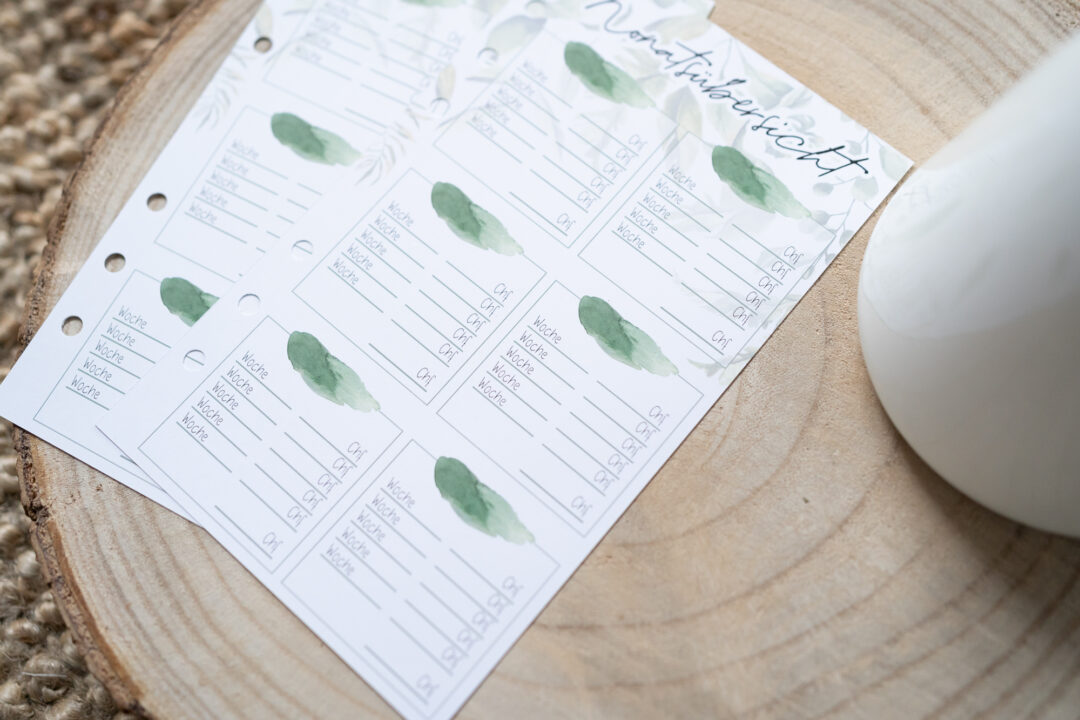 Monatsübersicht
Woche Chf
Woche Chf
Woche Chf
Woche Chf
Chf
Woche Chf
Woche Chf
Woche Chf
Woche Chf
Chf
Woche Chf
Woche Chf
Woche Chf
Woche Chf
Chf
Woche Chf
Woche Chf
Woche Chf
Woche Chf
Chf
Woche Chf
Woche Chf
Woche Chf
Woche Chf
Chf
Woche Chf
Woche Chf
Woche Chf
Woche Chf
Chf
Woche
Woche
Woche
Woche
Woche
Woche
Woche
Woche
Woche
Woche